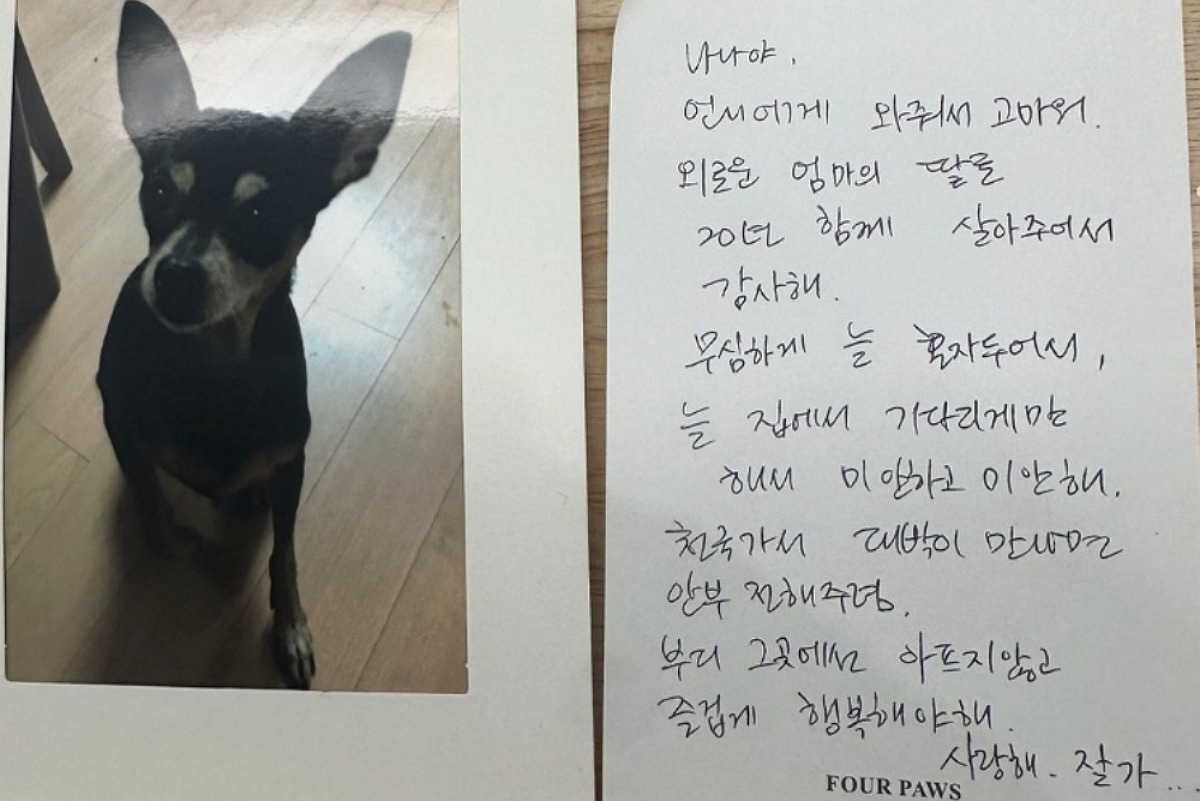 나나야.
언니에게 와줘서 고마워.
외로운 엄마의 딸로
20년 함께 살아주어서
감사해.
무심하게 늘 혼자두어서,
늘 집에서 기다리게만
해서 미안하고 미안해.
천국가서 대박이 만나면
안부 전해주렴.
부디 그곳에선 아프지않고
즐겁게 행복해야해.
사랑해. 잘가...
FOUR PAWS